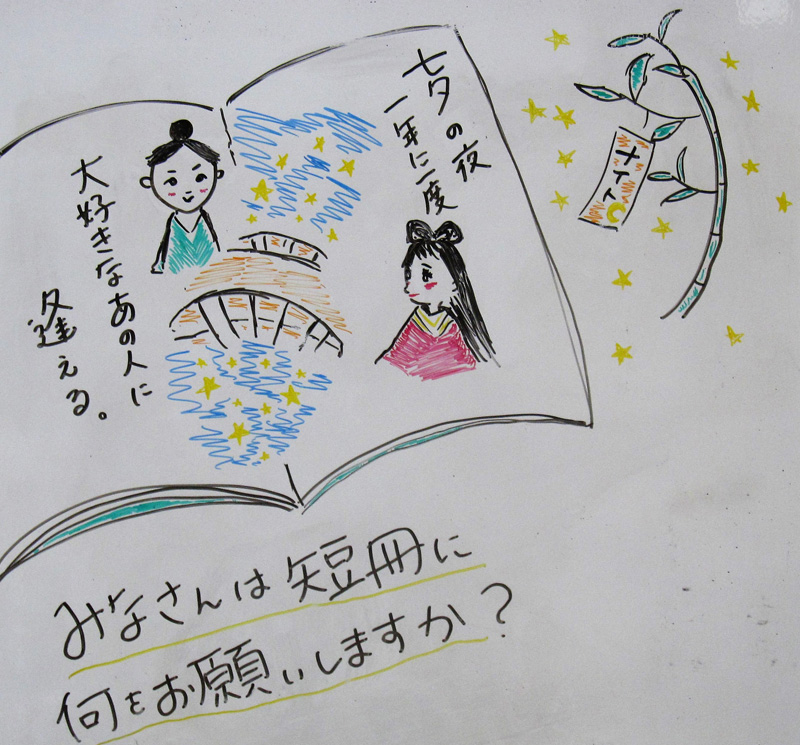 七夕の夜
一年に一度
大好きなあの人に
逢える。
メイト
みなさんは短冊に
何をお願いしますか？